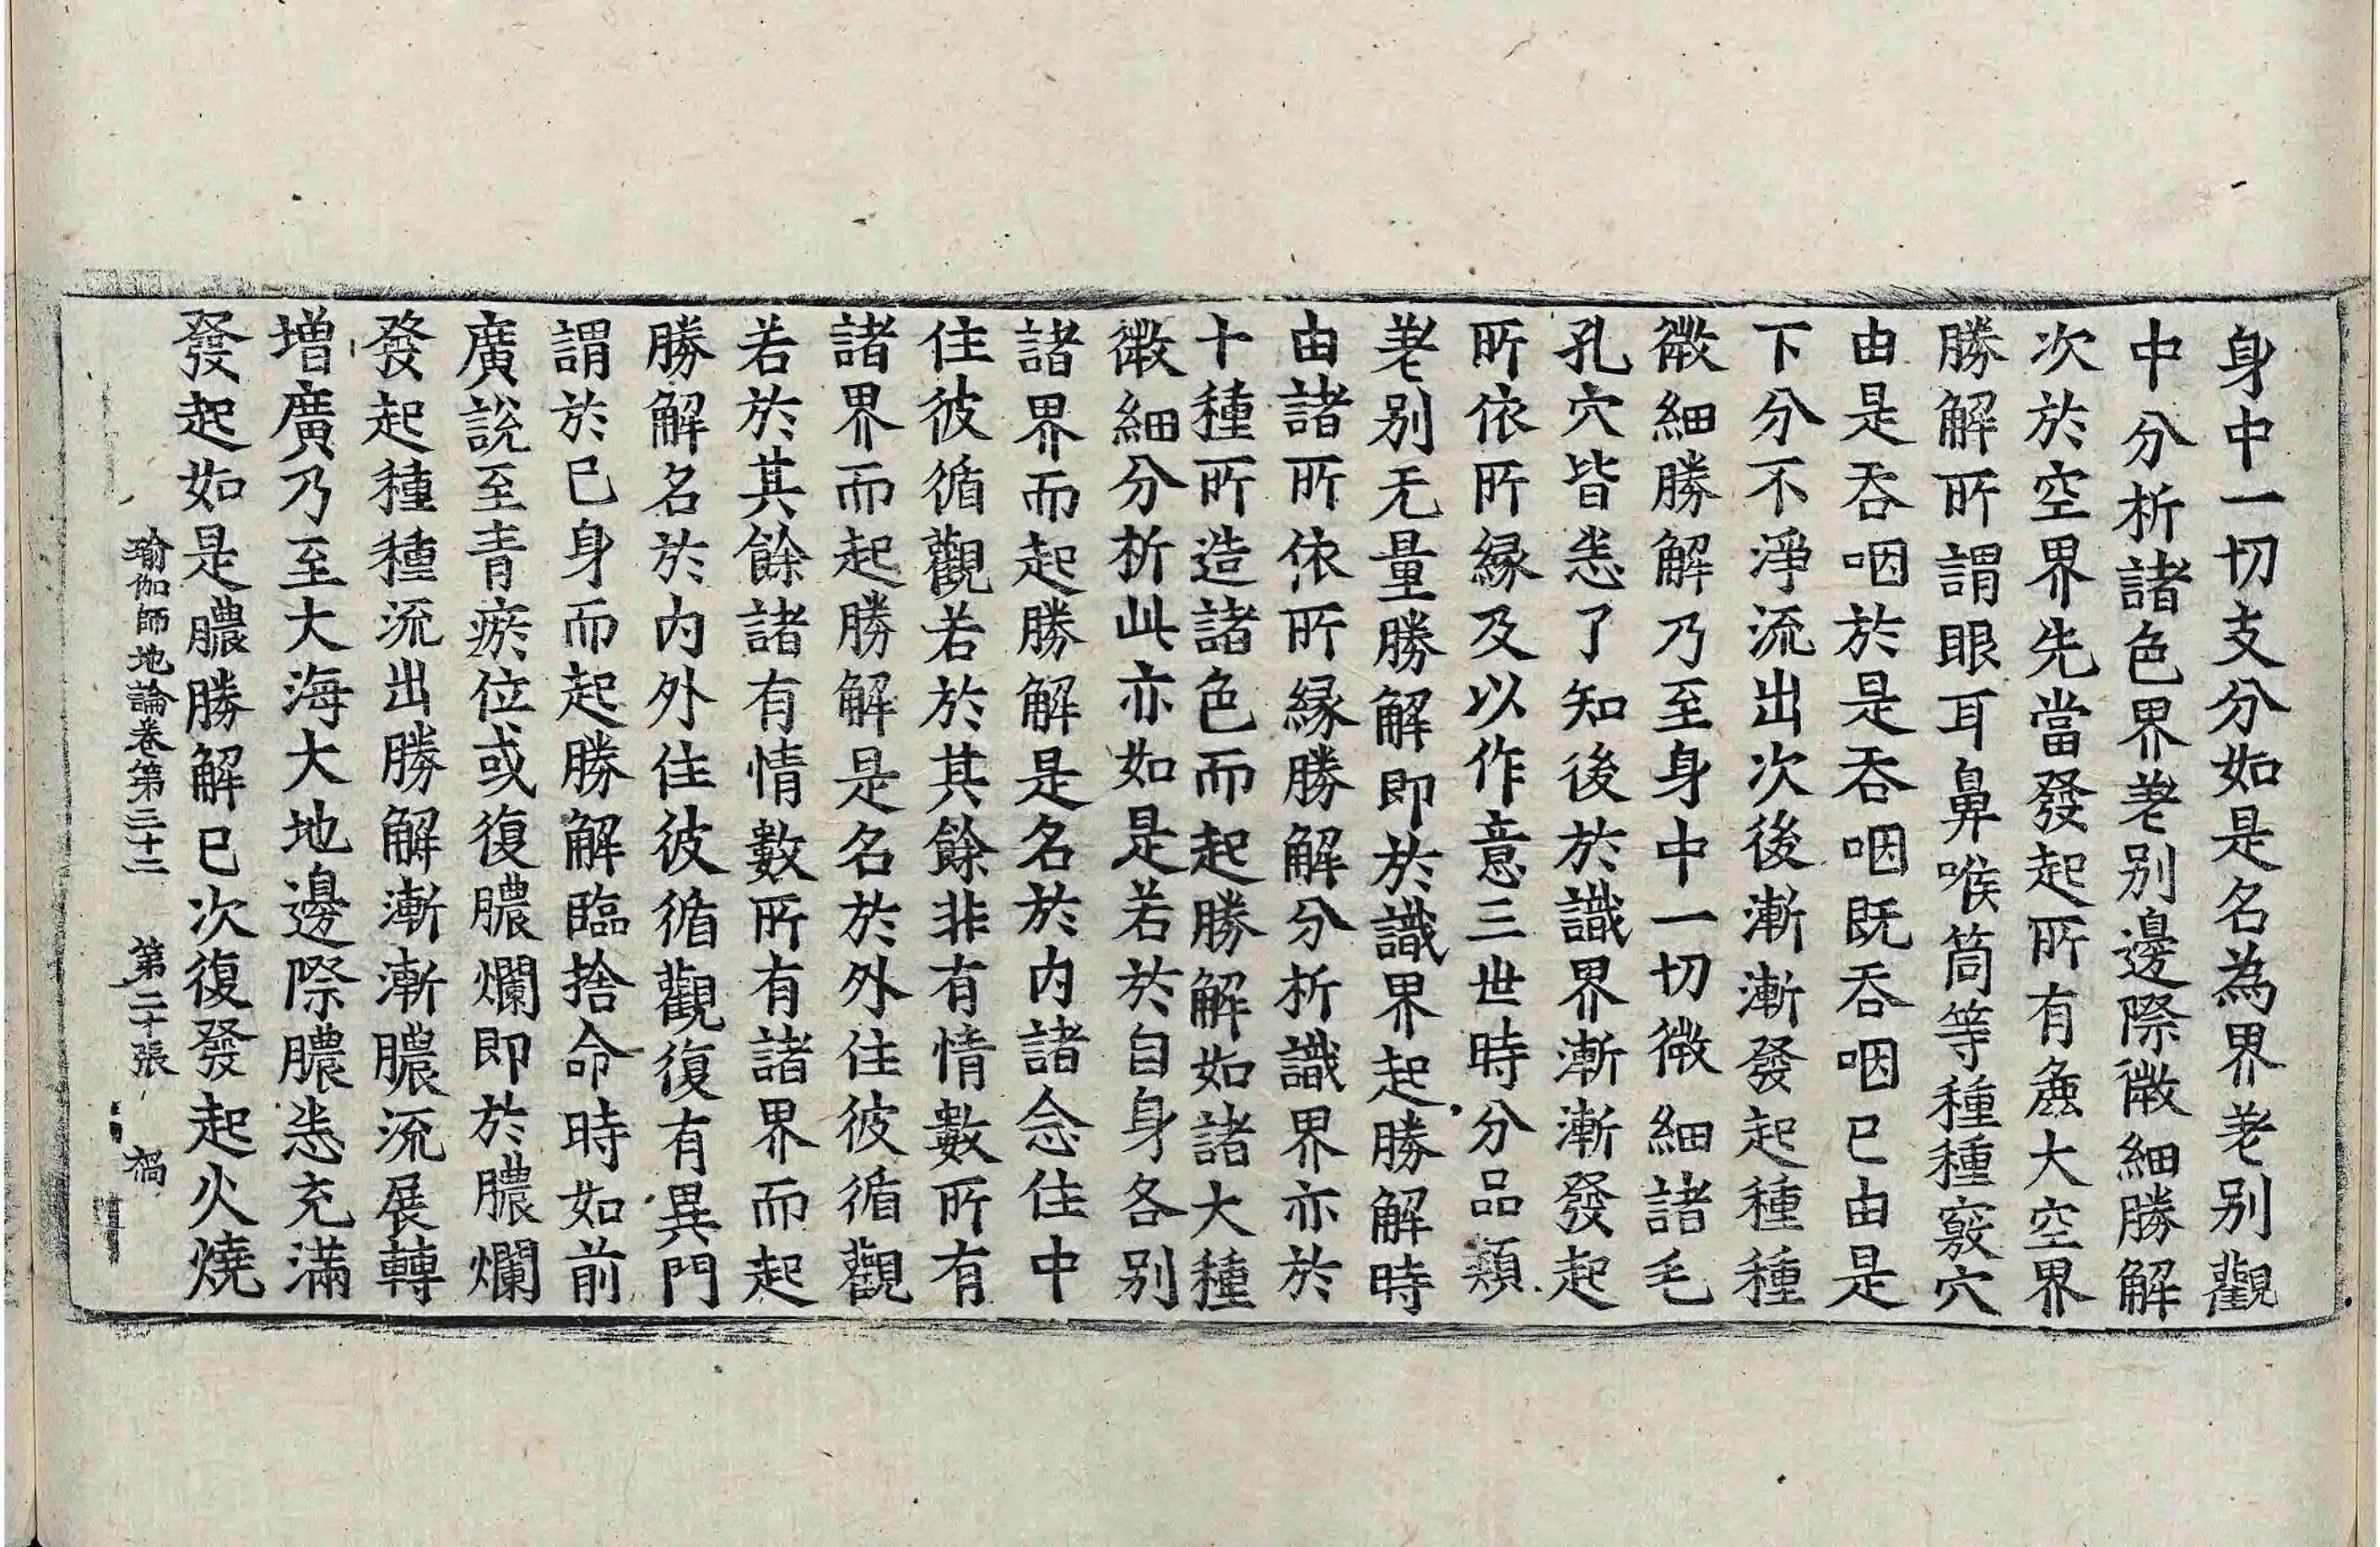 身中一切支分如是名為界差别觀
中分析諸色界差别邊際微細勝解
次於空界先當發起所有麁大空界
勝解所謂眼耳鼻喉筒等種種竅穴
由是吞咽於是吞咽既吞咽已由是
下分不淨流出次後漸漸發起種種
微細勝解乃至身中一切微細諸毛
孔穴皆悉了知後於識界漸漸發起
所依所緣及以作意三世時分品類
差别无量勝解即於識界起勝解時
由諸所依所緣勝解分析識界亦於
十種所造諸色而起勝解如諸大種
微細分析此亦如是若於自身各别
諸界而起勝解是名於内諸念住中
住彼循觀若於其餘非有情數所有
諸界而起勝解是名於外住彼循觀
若於其餘諸有情數所有諸界而起
勝解名於内外住彼循觀復有異門
謂於已身而起勝解臨捨命時如前
廣說至青瘀位或復膿爛即於膿爛
發起種種流出勝解漸漸膿流展轉
増廣乃至大海大地邊際膿悉充滿
發起如是膿勝解已次復發起火燒
瑜伽師地論卷第三十二　第二十張　禍